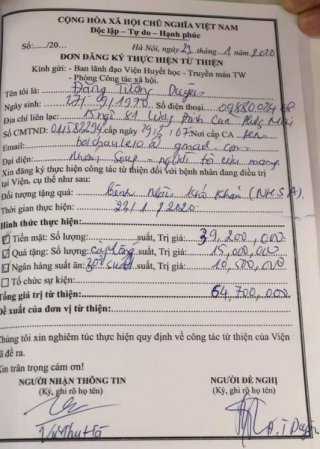 CỘNG HÒA XÃ HỘI CHỦ NGHĨA VIỆT NAM
Độc lập – Tự do – Hạnh phúc
Số:...../20.... Hà Nội, ngày 29 tháng 1 năm 2020
ĐƠN ĐĂNG KÝ THỰC HIỆN TỪ THIỆN
Kính gửi: - Ban lãnh đạo Viện Huyết học - Truyền máu TW
- Phòng Công tác xã hội.
Tên tôi là: Đặng Tường Duyên
Ngày sinh: Số điện thoại
Địa chỉ liên lạc: 15 ngõ 81
Số CMTND: cấp ngày Nơi cấp CA
Email: gmail.com
Đại diện: Nhóm Soup
Xin đăng ký thực hiện công tác từ thiện đối với bệnh nhân đang điều trị
tại Viện, cụ thể như sau:
Đối tượng tặng quà: Bệnh nhân khó khăn
Thời gian thực hiện: 29/1/2020
Hình thức thực hiện:
Tiền mặt: Số lượng: suất, Trị giá: 39,200,000
Quà tặng: Số lượng: suất, Trị giá: 15,000,000
Ngân hàng suất ăn: suất, Trị giá: 10,500,000
Tổ chức sự kiện:
Tổng giá trị từ thiện: 64,700,000
Đề xuất của đơn vị từ thiện:
Chúng tôi xin nghiêm túc thực hiện quy định về công tác từ thiện của Viện
đã đề ra.
Xin trân trọng cảm ơn!
NGƯỜI NHẬN THÔNG TIN NGƯỜI ĐỀ NGHỊ
(Ký, ghi rõ họ tên) (Ký, ghi rõ họ tên)
Vũ Thu Hà Đ.T Duyên